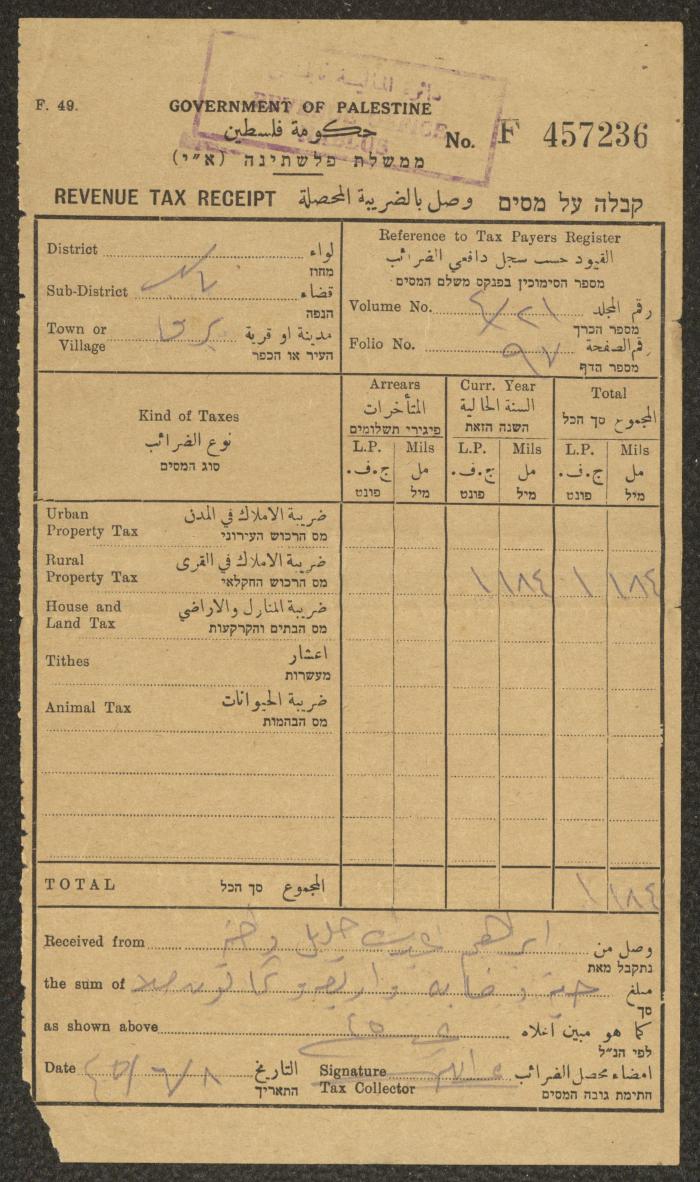 دائرة المالية نابلس
REVENUE OFFICE
NABLUS
F. 49.
GOVERNMENT OF PALESTINE
حكومة فلسطين
ממשלת פלשתינה (א״י)
No. F 457236
REVENUE TAX RECEIPT وصل بالضريبة المحصلة קבלה על מסים
District لواء
מחוז
Sub-District قضاء
הנפה
Town or Village مدينة او قرية
העיר או הכפר
Reference to Tax Payers Register
القيود حسب سجل دافعي الضرائب
מספר הסימוכין בפנקס משלם המסים
Volume No. ٤/٢١ رقم المجلد
מספר הכרך
Folio No. ٩٧ رقم الصفحة
מספר הדף
Kind of Taxes
نوع الضرائب
סוג המסים
Arrears
المتأخرات
פיגורי תשלומים
Curr. Year
السنة الحالية
השנה הזאת
Total
المجموع סך הכל
L.P. Mils L.P. Mils L.P. Mils
ج.ف. مل ج.ف. مل ج.ف. مل
פונט מיל פונט מיל פונט מיל
Urban Property Tax ضريبة الاملاك في المدن
מס הרכוש העירוני
Rural Property Tax ضريبة الاملاك في القرى
מס הרכוש החקלאי
١ ١٨٤ ١ ١٨٤
House and Land Tax ضريبة المنازل والاراضي
מס הבתים והקרקעות
Tithes اعشار
מעשרות
Animal Tax ضريبة الحيوانات
מס הבהמות
TOTAL المجموع סך הכל ١ ١٨٤
Received from ابراهيم خليل وصل من
נתקבל מאת
the sum of مبلغ
סך
as shown above كما هو مبين اعلاه
לפי הנ״ל
Date ٤٥/٦/٨ التاريخ
התאריך
Signature Tax Collector امضاء محصل الضرائب
חתימת גובה המסים